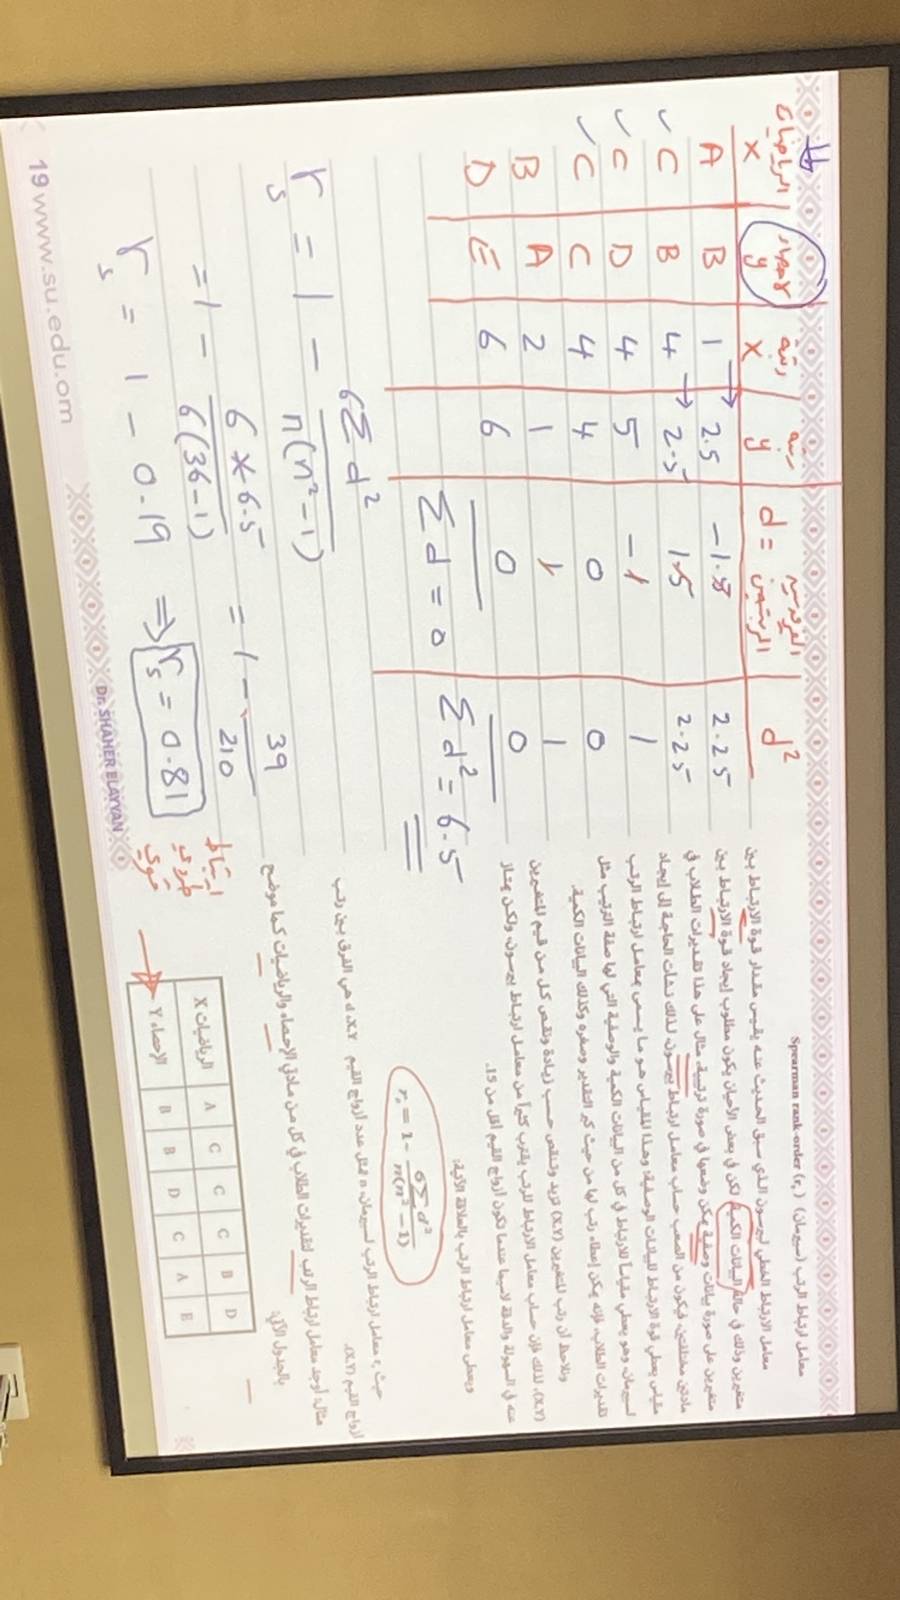 معامل ارتباط الرتب (سبيرمان) Spearman rank-order (rₛ)
معامل الارتباط الخطي لبيرسون الذي سبق الحديث عنه يقيس مقدار قوة الارتباط بين
متغيرين وذلك في حالة البيانات الكمية لكن في بعض الأحيان يكون مطلوب إيجاد قوة الارتباط بين
متغيرين على صورة بيانات وصفية يمكن وضعها في صورة ترتيبية. مثال على هذا تقديرات الطلاب في
مادتين مختلفتين، فيكون من الصعب حساب معامل ارتباط بيرسون، لذلك نشأت الحاجة إلى إيجاد
مقياس يعطي قوة الارتباط للبيانات الوصفية، وهذا المقياس هو ما يسمى بمعامل ارتباط الرتب
لسبيرمان، وهو يعطي مقياساً للارتباط في كل من البيانات الكمية والوصفية التي لها صفة الترتيب مثل
تقديرات الطلاب، فإنه يمكن إعطاء رتب لها من حيث كبر التقدير وصغره وكذلك البيانات الكمية.
ونلاحظ أن رتب المتغيرين (X,Y) تزيد وتنقص حسب زيادة ونقص كل من قيم المتغيرين
(X,Y)، لذلك فإن حساب معامل الارتباط للرتب يقترب كثيراً من معامل ارتباط بيرسون، ولكن يمتاز
عنه في السهولة والدقة لاسيما عندما تكون أزواج القيم أقل من 15.
ويعطى معامل ارتباط الرتب بالعلاقة الآتية:
rₛ = 1 - 6∑d² / n(n² - 1)
حيث rₛ معامل ارتباط الرتب لسبيرمان، n تمثل عدد أزواج القيم X,Y، d هي الفرق بين رتب
أزواج القيم (X,Y).
مثال: أوجد معامل ارتباط الرتب لتقديرات الطلاب في كل من مادتي الإحصاء والرياضيات كما موضح
بالجدول الآتي:
الرياضيات X A C C C B D
الإحصاء Y B B D C A E
الرياضيات x | الاحصاء y | رتبة x | رتبة y | الفرق بين الرتبتين d = | d²
A B 1 2.5 -1.5 2.25
C B 4 2.5 1.5 2.25
C D 4 5 -1 1
C C 4 4 0 0
B A 2 1 1 1
D E 6 6 0 0
∑d = 0 ∑d² = 6.5
rₛ = 1 - 6∑d² / n(n² - 1)
= 1 - 6 * 6.5 / 6(36 - 1) = 1 - 39 / 210
rₛ = 1 - 0.19 ⇒ rₛ = 0.81
ارتباط طردي قوي
19 www.su.edu.om
Dr. SHAHER ELAYYAN